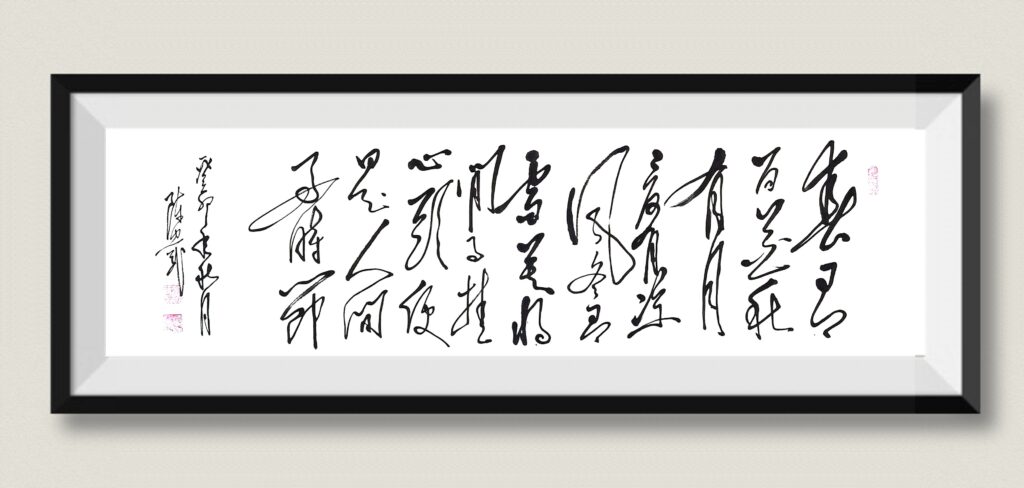 春有
百花秋
有月
夏有凉
风冬有
雪莫将
闲事挂
心头便
是人间
好时节
癸卯年秋月